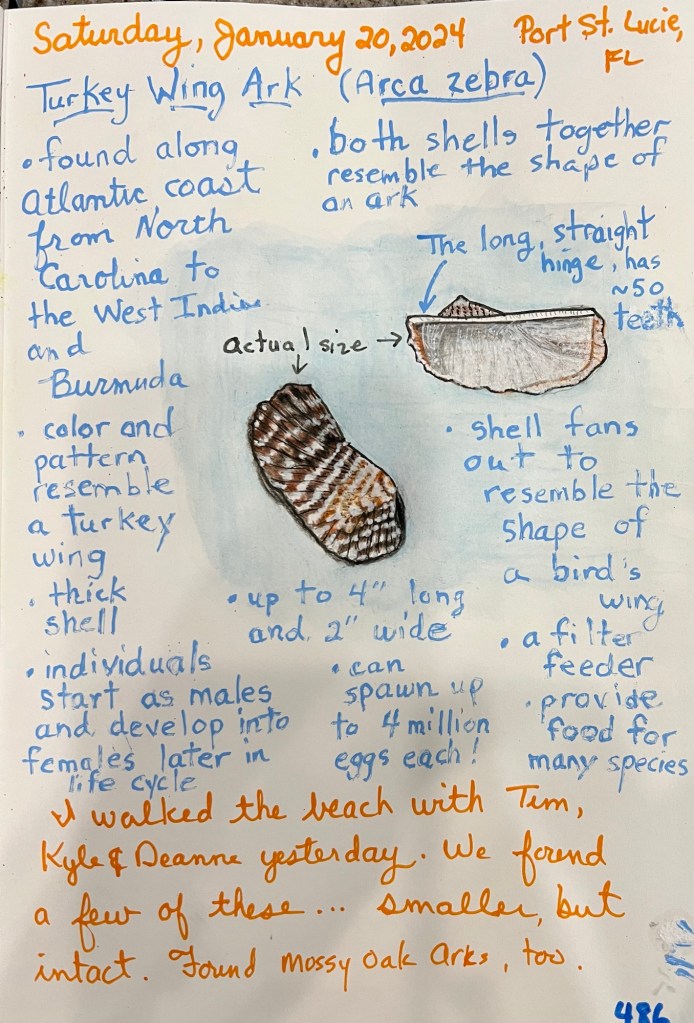 Saturday, January 20, 2024 Port St. Lucie,
FL
Turkey Wing Ark (Arca zebra)
• found along
Atlantic coast
from North
Carolina to
the West Indies
and
Burmuda
• both shells together
resemble the shape of
an ark
The long, straight
hinge, has
~50
teeth
actual size →
• color and
pattern
resemble
a turkey
wing
• thick
shell
• shell fans
out to
resemble the
shape of
a bird's
wing
• up to 4" long
and 2" wide
• a filter
feeder
• individuals
start as males
and develop into
females later in
life cycle
• can
spawn up
to 4 million
eggs each!
• provide
food for
many species
I walked the beach with Tim,
Kyle & Deanne yesterday. We found
a few of these... smaller, but
intact. Found Mossy Oak Arks, too.
486